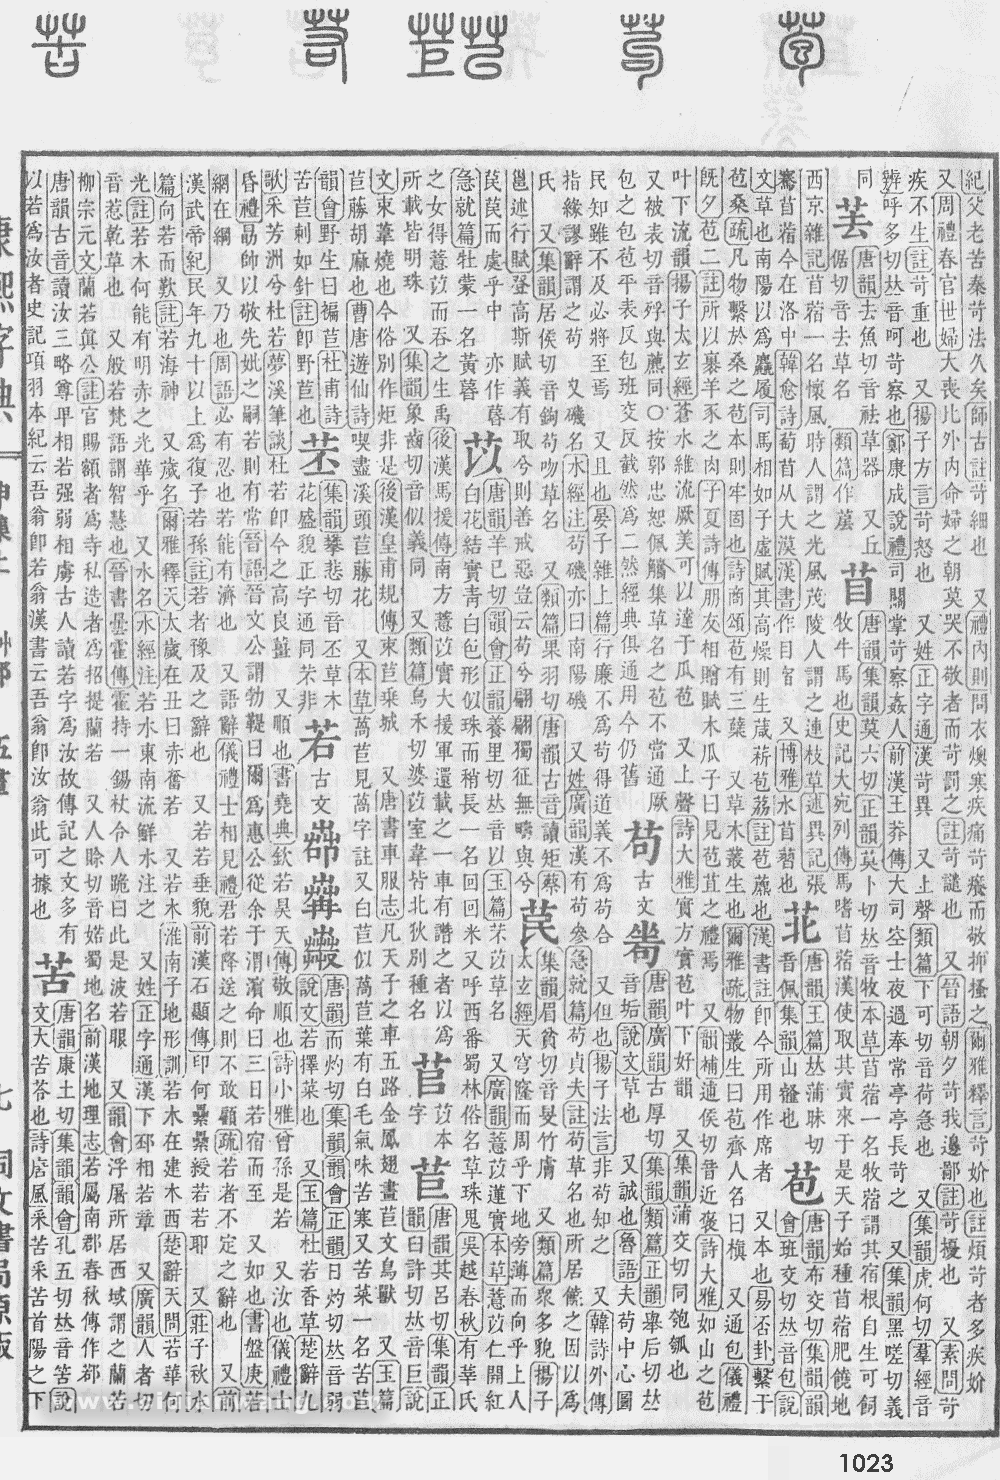 紀父老苦秦苛法久矣師古註苛細也 又禮內則問衣燠寒疾痛苛癢而敬抑搔之爾雅釋言苛妎也註煩苛者多疾妎
又周禮春官世婦大喪比外內命婦之朝莫哭不敬者而苛罰之註苛譴也 又晉語朝夕苛我邊鄙註苛擾也 又素問苛
疾不生註苛重也 又揚子方言苛怒也 又姓正字通漢苛異 又上聲類篇下可切音荷急也 又集韻虎何切羣經音
辨呼多切𠀤音呵苛察也鄭康成說禮司關掌苛察姦人前漢王莽傳大司空士夜過奉常亭亭長苛之 又集韻黑嗟切義
同 唐韻去魚切音祛草器 又丘倨切音去草名 類篇作
苜 唐韻集韻莫六切正韻莫卜切𠀤音牧本草苜蓿一名牧蓿謂其宿根自生可飼牧牛馬也史記大宛列傳馬嗜苜蓿漢使取其實來于是天子始種苜蓿肥饒地
西京雜記苜蓿一名懷風時人謂之光風茂陵人謂之連枝草述異記張
騫苜蓿今在洛中韓愈詩萄苜从大漠漢書作目宿 又博雅水苜
唐韻玉篇𠀤蒲昧切音佩集韻山鰓也
文草也南陽以爲麤履司馬相如子虛賦其高燥則生葴菥苞荔註苞藨也漢書註卽今所用作席者 又本也易否卦繫于
苞 唐韻布交切集韻韻會班交切𠀤音包說
苞桑疏凡物繫於桑之苞本則牢固也詩商頌苞有三蘖 又草木叢生也爾雅疏物叢生曰苞齊人名曰槇 又通包儀禮
旣夕苞二註所以裹羊豕之肉子夏詩傳朋友相贈賦木瓜子曰見苞苴之禮焉 又韻補逋侯切音近褒詩大雅如山之苞
叶下流韻揚子太玄經蒼水維流厥美可以達于瓜苞 又上聲詩大雅實方實苞叶下好韻 又集韻蒲交切同匏瓠也
又被表切音殍與藨同○按郭忠恕佩觿集草名之苞不當通厥包之包苞平表反包班交反截然爲二然經典俱通用今仍舊
苟 古文 唐韻廣韻古厚切集韻類篇正韻舉后切𠀤音垢說文草也 又誠也魯語夫苟中心圖
民知雖不及必將至焉 又且也晏子雜上篇行廉不爲苟得道義不爲苟合 又但也揚子法言非苟知之 又韓詩外傳
指緣謬辭謂之苟 又磯名水經注苟磯亦曰南陽磯 又姓廣韻漢有苟參急就篇苟貞夫註苟草名也所居饒之因以爲
氏 又集韻居侯切音鉤苟吻草名 又類篇果羽切唐韻古音讀矩蔡
邕述行賦登高斯賦義有取兮則善戒惡豈云苟兮翩翩獨征無疇與兮
苠 集韻眉貧切音旻竹膚 又類篇衆多貌揚子太玄經天穹窿而周乎下地旁薄而向乎上人
苠苠而處乎中 亦作
苡 唐韻羊已切韻會正韻養里切𠀤音以玉篇芣苡草名 又廣韻薏苡蓮實本草薏苡仁開紅白花結實靑白色形似珠而稍長一名回回米又呼西番蜀林俗名草珠兒吳越春秋有莘氏
急就篇牡蒙一名黃
之女得薏苡而吞之生禹後漢馬援傳南方薏苡實大援軍還載之一車有譖之者以爲
所載皆明珠 又集韻象齒切音似義同 又類篇鳥禾切婆苡室韋皆北狄別種名
苢 苡本字
苣 唐韻其呂切集韻正韻臼許切𠀤音巨說
文束葦燒也今俗別作炬非是後漢皇甫規傳束苣乗城 又唐書車服志凡天子之車五路金鳳翅畫苣文鳥獸 又玉篇
苣藤胡麻也曹唐遊仙詩喫盡溪頭苣藤花 又本草萵苣見萵字註又白苣似萵苣葉有白毛氣味苦寒又苦菜一名苦苣
韻會野生曰褊苣杜甫詩苦苣刺如針註卽野苣也
苤 集韻攀悲切音丕草木花盛貌正字通同芣非
若 古文 唐韻而灼切集韻韻會正韻日灼切𠀤音弱說文若擇菜也 又玉篇杜若香草楚辭九
歌采芳洲兮杜若夢溪筆談杜若卽今之高良薑 又順也書堯典欽若昊天傳敬順也詩小雅曾孫是若 又汝也儀禮士
昏禮勗帥以敬先妣之嗣若則有常晉語晉文公謂勃鞮曰爾爲惠公從余于渭濱命曰三日若宿而至 又如也書盤庚若
網在綱 又乃也周語必有忍也若能有濟也 又語辭儀禮士相見禮君若降送之則不敢顧疏若者不定之辭也 又前
漢武帝紀民年九十以上爲復子若孫註若者豫及之辭也 又若若垂貌前漢石顯傳印何纍纍綬若若耶 又莊子秋水
篇向若而歎註若海神 又歲名爾雅釋天太歲在丑曰赤奮若 又若木淮南子地形訓若木在建木西楚辭天問若華何
光註若木何能有明赤之光華乎 又水名水經注若水東南流鮮水注之 又姓正字通漢下邳相若章 又廣韻人者切
音惹乾草也 又般若梵語謂智慧也晉書曇霍傳霍持一錫杖令人跪曰此是波若眼 又韻會浮屠所居西域謂之蘭若
柳宗元文蘭若眞公註官賜額者爲寺私造者爲招提蘭若 又人賒切音婼蜀地名前漢地理志若屬南郡春秋傳作鄀
唐韻古音讀汝三略尊𤰞相若强弱相虜古人讀若字爲汝故傳記之文多有
以若爲汝者史記項羽本紀云吾翁卽若翁漢書云吾翁卽汝翁此可據也
苦 唐韻康土切集韻韻會孔五切𠀤音笘說文大苦苓也詩唐風采苦采苦首陽之下
康熙字典
申集上
艸部
五畫
七
同文書局原版
1023